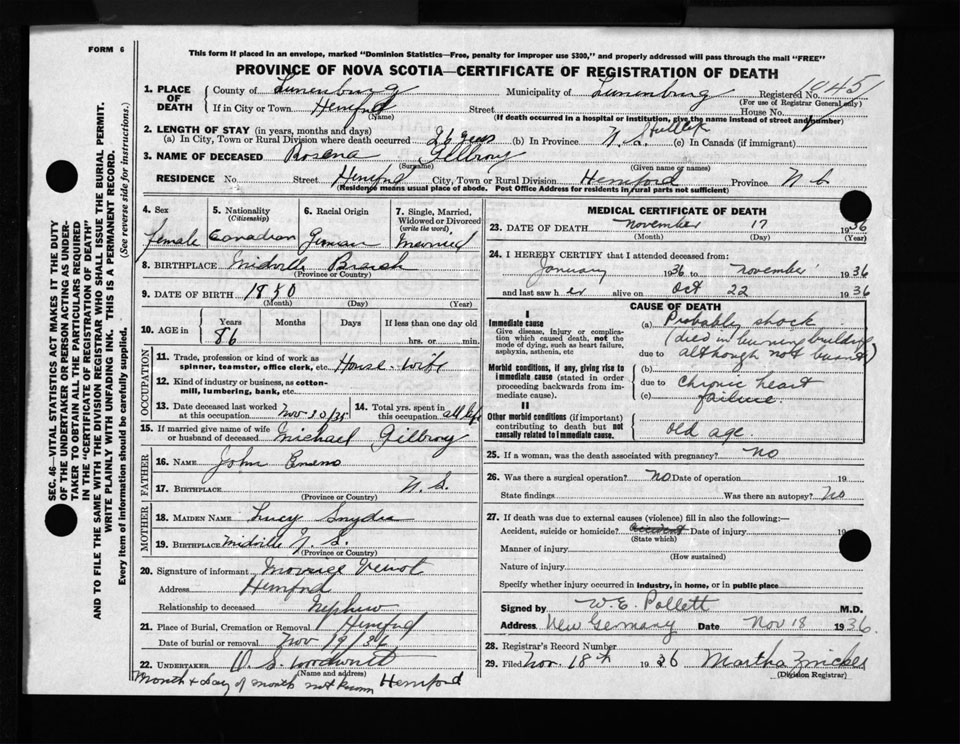 FORM 6
This form if placed in an envelope, marked "Dominion Statistics—Free, penalty for improper use $300," and properly addressed will pass through the mail "FREE"
PROVINCE OF NOVA SCOTIA—CERTIFICATE OF REGISTRATION OF DEATH
1. PLACE OF DEATH
County of Lunenburg Municipality of Lunenburg Registered No.
(For use of Registrar General only)
If in City or Town Hemford Street House No.
(Name) (If death occurred in a hospital or institution, give the name instead of street and number)
2. LENGTH OF STAY (in years, months and days)
(a) In City, Town or Rural Division where death occurred 26 years (b) In Province N.S. (c) In Canada (if immigrant)
3. NAME OF DECEASED Rosena Gilbroy
(Surname) (Given name or names)
RESIDENCE No. Street Hemford City, Town or Rural Division Hemford Province N S
(Residence means usual place of abode. Post Office Address for residents in rural parts not sufficient)
4. Sex female
5. Nationality (Citizenship) Canadian
6. Racial Origin German
7. Single, Married, Widowed or Divorced (write the word) Married
8. BIRTHPLACE Midville Branch
(Province or Country)
9. DATE OF BIRTH 1850
(Month) (Day) (Year)
10. AGE in Years Months Days If less than one day old
86 hrs. or min.
OCCUPATION
11. Trade, profession or kind of work as spinner, teamster, office clerk, etc. House-wife
12. Kind of industry or business, as cotton-mill, lumbering, bank, etc.
13. Date deceased last worked at this occupation Nov 30/35
14. Total yrs. spent in this occupation all life
15. If married give name of wife or husband of deceased Michael Gilbroy
FATHER
16. NAME John
17. BIRTHPLACE N. S.
(Province or Country)
MOTHER
18. MAIDEN NAME Lucy Snyder
19. BIRTHPLACE Midville N. S.
(Province or Country)
20. Signature of informant Veinot
Address Hemford
Relationship to deceased Nephew
21. Place of Burial, Cremation or Removal Hemford
Date of burial or removal Nov 19/36
22. UNDERTAKER
(Name and address)
Month & day of month not known Hemford
MEDICAL CERTIFICATE OF DEATH
23. DATE OF DEATH November 17 1936
(Month) (Day) (Year)
24. I HEREBY CERTIFY that I attended deceased from:
January 1936 to November 1936
and last saw h er alive on Oct 22 1936
CAUSE OF DEATH
I
Immediate cause
Give disease, injury or complication which caused death, not the mode of dying, such as heart failure, asphyxia, asthenia, etc
(a) Probably shock
(died in burning building
due to although not burnt)
Morbid conditions, if any, giving rise to immediate cause (stated in order proceeding backwards from immediate cause).
(b)
due to chronic heart
(c) failure.
II
Other morbid conditions (if important) contributing to death but not causally related to immediate cause.
old age.
25. If a woman, was the death associated with pregnancy? no
26. Was there a surgical operation? No Date of operation 19
State findings Was there an autopsy? No
27. If death was due to external causes (violence) fill in also the following:—
Accident, suicide or homicide? Accident Date of injury 19
(State which)
Manner of injury
(How sustained)
Nature of injury
Specify whether injury occurred in industry, in home, or in public place
Signed by W. E. Pollett M.D.
Address New Germany Date Nov 18 1936.
28. Registrar's Record Number
29. Filed Nov. 18th 1936 Martha
(Division Registrar)
SEC. 46—VITAL STATISTICS ACT MAKES IT THE DUTY
OF THE UNDERTAKER OR PERSON ACTING AS UNDER-
TAKER TO OBTAIN ALL THE PARTICULARS REQUIRED
IN THE "CERTIFICATE OF REGISTRATION OF DEATH"
AND TO FILE THE SAME WITH THE DIVISION REGISTRAR WHO SHALL ISSUE THE BURIAL PERMIT.
WRITE PLAINLY WITH UNFADING INK. THIS IS A PERMANENT RECORD.
Every item of information should be carefully supplied. (See reverse side for instructions.)